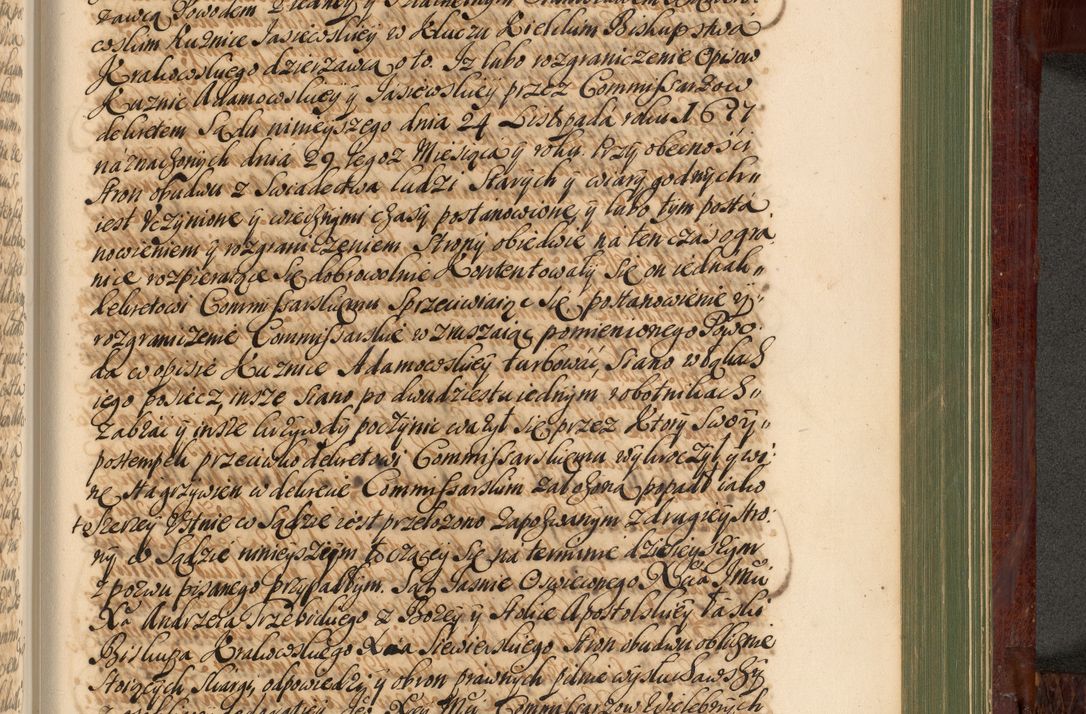 zawcą Powodem z iedney y Szlachetnym
cowskim Kuznice Jasiewskiey w Kluczu Kieleckim Biskupstwa
Krakowskiego dzierzawcą o to. Iz lubo rozgraniczenie Opisow
Kuznic Adamowskiey y Jasiewskiey przez Commissarzow
dekretem Sądu ninieyszego dnia 24 Listopada roku 1677
náznaczonych dnia 29 tegoz Miesiąca y roku. Przy obecnósći
stron obudwu z Swiadectwa ludzi Starych y wiary godnych
iest vczynione y wiecznymi czasy postanowione, y lubo tym postá
nowieniem y rozgraniczeniem strony obiedwie na ten czas ogra
nice rozpieraiące się dobrowolnie Kontentowały się on iednak
dekretowi Commissarskiemu sprzeciwiaiąc się postanowienie y
rozgraniczenie Commissarskie wzruszaiąc pomienionego Powo
da w opisie Kuznice Adamowskiey turbowáć, Siano w
iego posiecz, insze siano po dwudziestu iednym robotnikach
zabráć y insze krzywdy poczynic wazył się przez Ktory swoy
postempek przeciwko dekretowi Commissarskiemu wykroczył y wi
nę sta grzywien w dekrecie Commissarskim załozoną popadł iako
to szerzey Vstnie w Sądzie iest przełozono Zapozwanym z drugiey stro
ny w Sądzie ninieyszym toczącey się na terminie dzisieyszym
z pozwu pisanego przypadłym. Sąd Jasnie Oswieconego Xcia JMci
Xa Andrzeia Trzebickiego z Bozey y Stolice Apostolskiey łaski
Biskupa Krakowskiego Xcia Siewierskiego stron obudwu oblicznie
stoiących skargi, odpowiedzi y obron prawnych pilnie wysłuchawszy
Jeo Xcey Mci Commissarzow Wielebnych